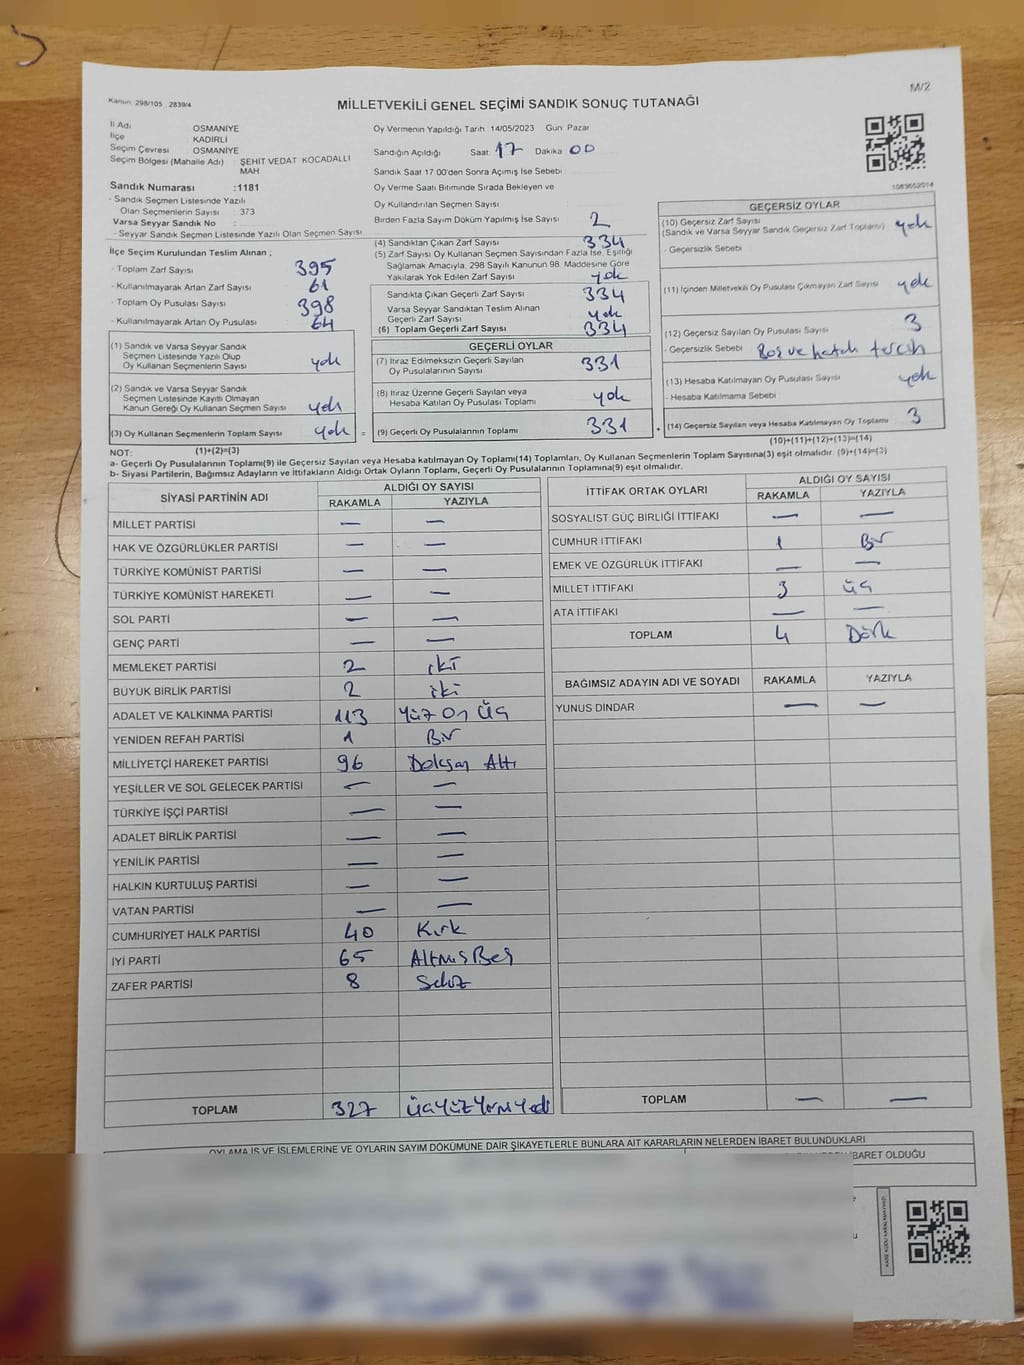 M/2
Kanun: 298/105 , 2839/4
MİLLETVEKİLİ GENEL SEÇİMİ SANDIK SONUÇ TUTANAĞI
İl Adı OSMANİYE
İlçe KADİRLİ
Seçim Çevresi OSMANİYE
Seçim Bölgesi (Mahalle Adı) : ŞEHİT VEDAT KOCADALLI MAH
Sandık Numarası :1181
- Sandık Seçmen Listesinde Yazılı
Olan Seçmenlerin Sayısı : 373
Varsa Seyyar Sandık No :
- Seyyar Sandık Seçmen Listesinde Yazılı Olan Seçmen Sayısı
Oy Vermenin Yapıldığı Tarih 14/05/2023 Gün Pazar
Sandığın Açıldığı Saat: 17 Dakika 00
Sandık Saat 17:00'den Sonra Açımış İse Sebebi
Oy Verme Saati Bitiminde Sırada Bekleyen ve
Oy Kullandırılan Seçmen Sayısı
Birden Fazla Sayım Döküm Yapılmış İse Sayısı 2
1083652014
İlçe Seçim Kurulundan Teslim Alınan ;
- Toplam Zarf Sayısı 395
- Kullanılmayarak Artan Zarf Sayısı 61
- Toplam Oy Pusulası Sayısı 398
- Kullanılmayarak Artan Oy Pusulası 64
(1) Sandık ve Varsa Seyyar Sandık
Seçmen Listesinde Yazılı Olup
Oy Kullanan Seçmenlerin Sayısı yok
(2) Sandık ve Varsa Seyyar Sandık
Seçmen Listesinde Kayıtlı Olmayan
Kanun Gereği Oy Kullanan Seçmen Sayısı yok
(3) Oy Kullanan Seçmenlerin Toplam Sayısı yok
(1)+(2)=(3)
(4) Sandıktan Çıkan Zarf Sayısı 334
(5) Zarf Sayısı Oy Kullanan Seçmen Sayısından Fazla İse, Eşitliği
Sağlamak Amacıyla, 298 Sayılı Kanunun 98. Maddesine Göre
Yakılarak Yok Edilen Zarf Sayısı yok
Sandıkta Çıkan Geçerli Zarf Sayısı 334
Varsa Seyyar Sandıktan Teslim Alınan
Geçerli Zarf Sayısı yok
(6) Toplam Geçerli Zarf Sayısı 334
GEÇERLİ OYLAR
(7) İtiraz Edilmeksizin Geçerli Sayılan
Oy Pusulalarının Sayısı 331
(8) İtiraz Üzerine Geçerli Sayılan veya
Hesaba Katılan Oy Pusulası Toplamı yok
= (9) Geçerli Oy Pusulalarının Toplamı 331
GEÇERSİZ OYLAR
(10) Geçersiz Zarf Sayısı
(Sandık ve Varsa Seyyar Sandık Geçersiz Zarf Toplamı) yok
- Geçersizlik Sebebi
(11) İçinden Milletvekili Oy Pusulası Çıkmayan Zarf Sayısı yok
(12) Geçersiz Sayılan Oy Pusulası Sayısı 3
- Geçersizlik Sebebi Boş ve hatalı tercih
(13) Hesaba Katılmayan Oy Pusulası Sayısı yok
- Hesaba Katılmama Sebebi
+ (14) Geçersiz Sayılan veya Hesaba Katılmayan Oy Toplamı 3
(10)+(11)+(12)+(13)=(14)
NOT:
a- Geçerli Oy Pusulalarının Toplamı(9) ile Geçersiz Sayılan veya Hesaba katılmayan Oy Toplamı(14) Toplamları, Oy Kullanan Seçmenlerin Toplam Sayısına(3) eşit olmalıdır. (9)+(14)=(3)
b- Siyasi Partilerin, Bağımsız Adayların ve İttifakların Aldığı Ortak Oyların Toplamı, Geçerli Oy Pusulalarının Toplamına(9) eşit olmalıdır.
SİYASİ PARTİNİN ADI ALDIĞI OY SAYISI
RAKAMLA YAZIYLA
MİLLET PARTİSİ — —
HAK VE ÖZGÜRLÜKLER PARTİSİ — —
TÜRKİYE KOMÜNİST PARTİSİ — —
TÜRKİYE KOMÜNİST HAREKETİ — —
SOL PARTİ — —
GENÇ PARTİ — —
MEMLEKET PARTİSİ 2 iki
BÜYÜK BİRLİK PARTİSİ 2 iki
ADALET VE KALKINMA PARTİSİ 113 Yüz On Üç
YENİDEN REFAH PARTİSİ 1 Bir
MİLLİYETÇİ HAREKET PARTİSİ 96 Doksan Altı
YEŞİLLER VE SOL GELECEK PARTİSİ — —
TÜRKİYE İŞÇİ PARTİSİ — —
ADALET BİRLİK PARTİSİ — —
YENİLİK PARTİSİ — —
HALKIN KURTULUŞ PARTİSİ — —
VATAN PARTİSİ — —
CUMHURİYET HALK PARTİSİ 40 Kırk
İYİ PARTİ 65 Altmış Beş
ZAFER PARTİSİ 8 Sekiz
TOPLAM 327 Üçyüz Yirmi Yedi
İTTİFAK ORTAK OYLARI ALDIĞI OY SAYISI
RAKAMLA YAZIYLA
SOSYALİST GÜÇ BİRLİĞİ İTTİFAKI — —
CUMHUR İTTİFAKI 1 Bir
EMEK VE ÖZGÜRLÜK İTTİFAKI — —
MİLLET İTTİFAKI 3 üç
ATA İTTİFAKI — —
TOPLAM 4 Dört
BAĞIMSIZ ADAYIN ADI VE SOYADI RAKAMLA YAZIYLA
YUNUS DİNDAR — —
TOPLAM — —
OYLAMA İŞ VE İŞLEMLERİNE VE OYLARIN SAYIM DÖKÜMÜNE DAİR ŞİKAYETLERLE BUNLARA AİT KARARLARIN NELERDEN İBARET BULUNDUKLARI
İBARET OLDUĞU